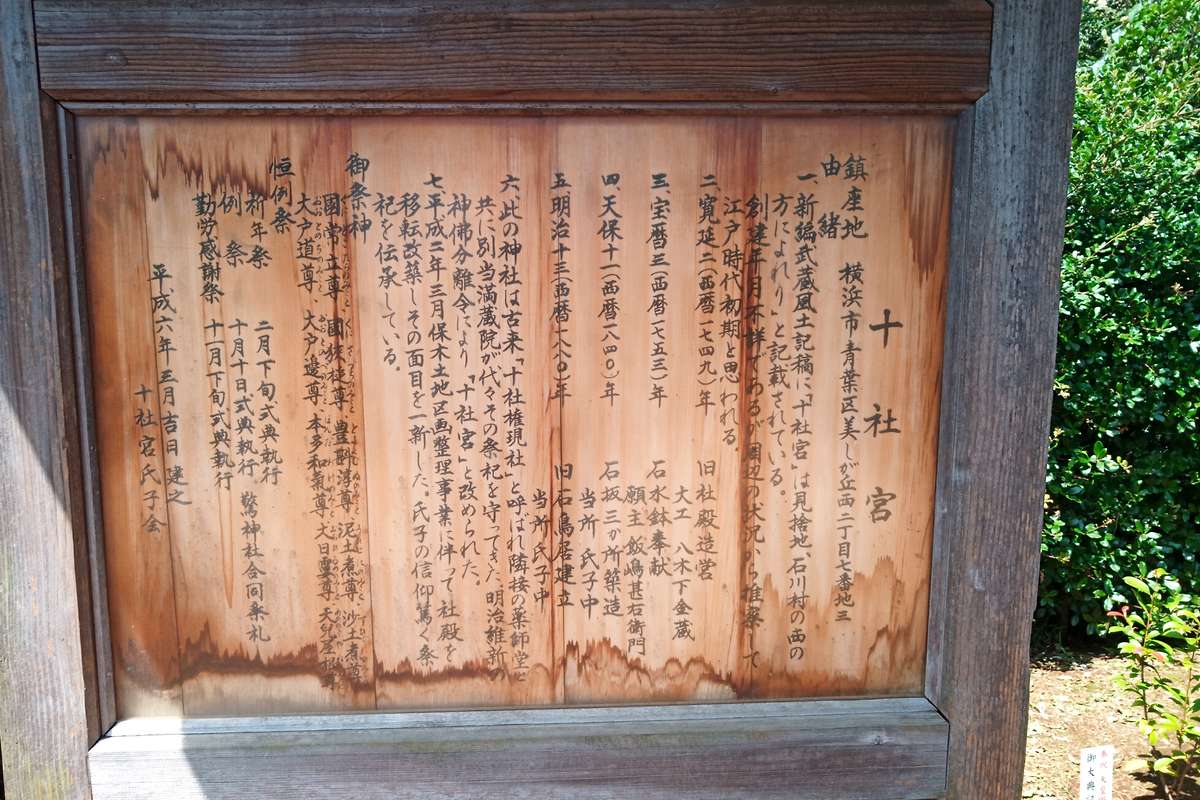 十社宮
鎮座地 横浜市青葉区美しが丘西二丁目七番地三
由緒
一、新編武蔵風土記稿に「十社宮」は見捨地、石川村の西の
方によれり」と記載されている。
創建年月不詳であるが周辺の状況から推察して
江戸時代初期と思われる。
二、寛延二(西暦一七四九)年 旧社殿造営
大工 八木下金蔵
三、宝暦三(西暦一七五三)年 石水鉢奉献
願主 飯嶋甚右衛門
四、天保十一(西暦一八四〇)年 石坂三か所築造
当所 氏子中
五、明治十三(西暦一八八〇)年 旧石鳥居建立
当所 氏子中
六、此の神社は古来「十社権現社」と呼ばれ隣接の薬師堂と
共に別当満蔵院が代々その祭祀を守ってきた。明治維新の
神佛分離令により、「十社宮」と改められた。
七、平成二年三月保木土地区画整理事業に伴って社殿を
移転改築しその面目を一新した。氏子の信仰篤く祭
祀を伝承している。
御祭神
國常立尊、國狭槌尊、豊斟渟尊、泥土煮尊、沙土煮尊、
大戸道尊、大戸邊尊、本多和氣尊、大日孁尊、天兒屋根尊
恒例祭
祈年祭 二月下旬式典執行
例祭 十月十日式典執行 驚神社合同祭礼
勤労感謝祭 十一月下旬式典執行
平成六年三月吉日 建之
十社宮氏子会
御大典